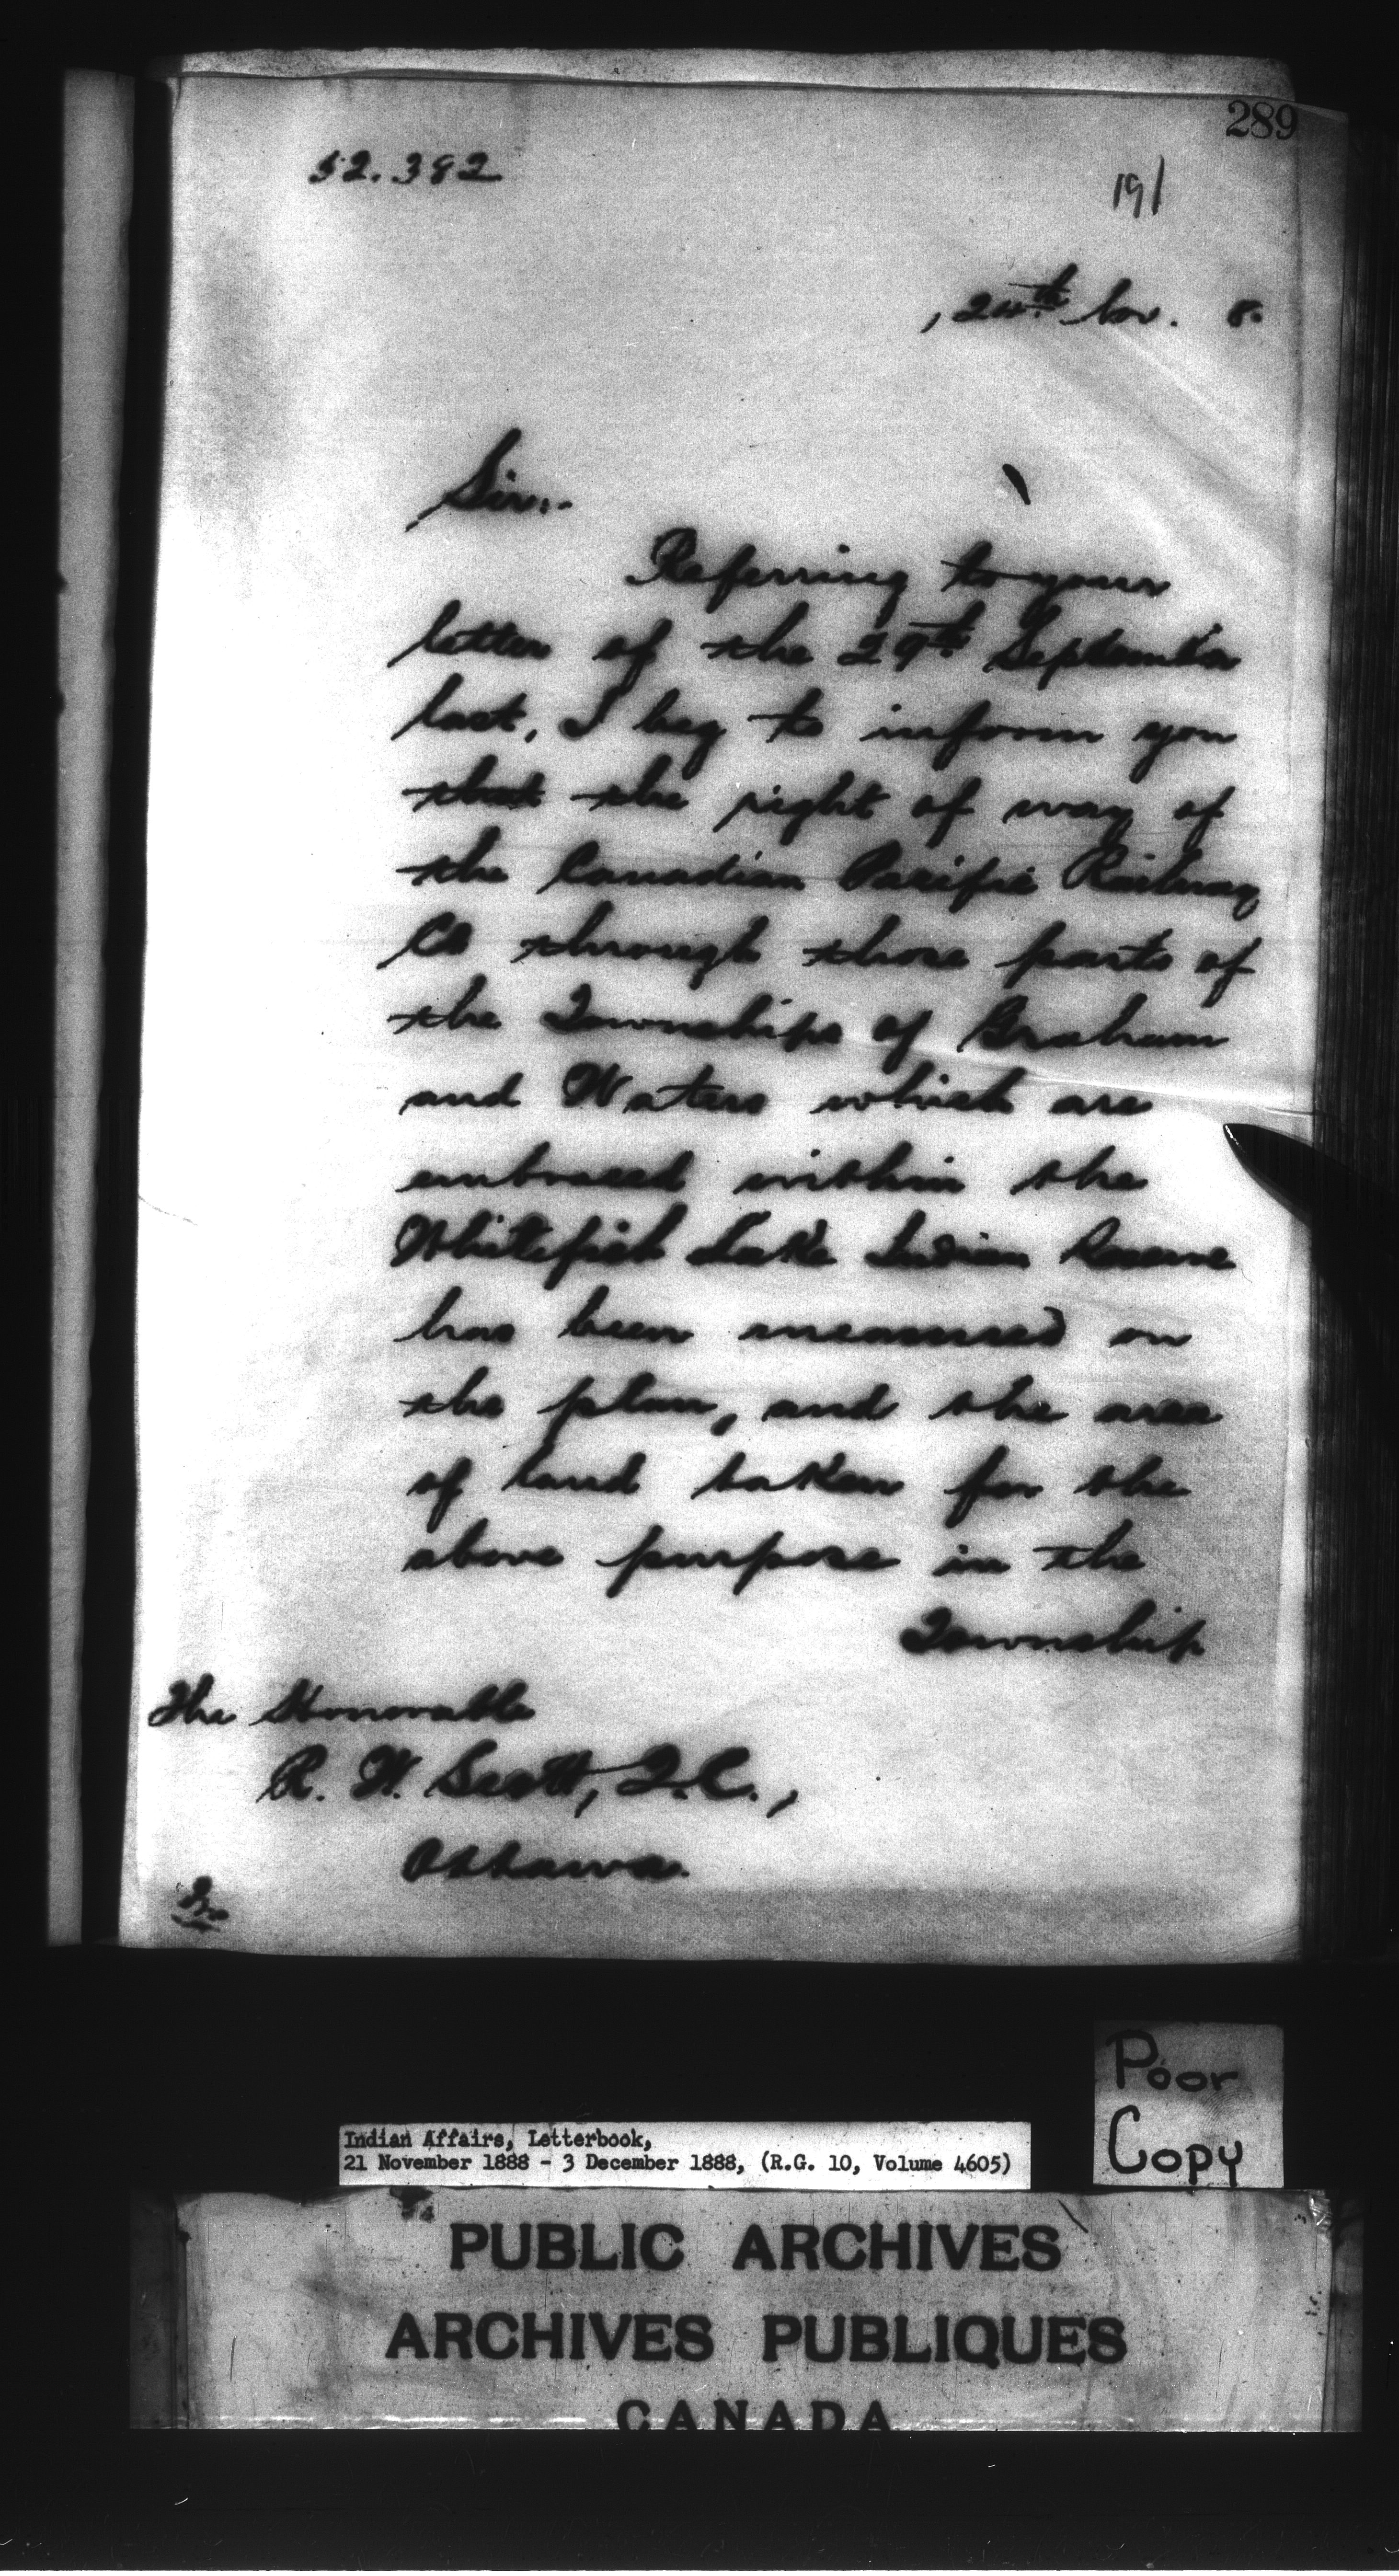 289
52.382
191
, 24th Nov. 8.
Sir:-
Referring to your
letter of the 29th September
last, I beg to inform you
that the right of way of
the Canadian Pacific Railway
Co through those parts of
the Townships of Graham
and Waters which are
embraced within the
Whitefish Lake Indian Reserve
has been measured on
the plan, and the area
of land taken for the
above purpose in the
Township
The Honorable
R. W. Scott, Q.C.,
Ottawa.
Poor
Copy
Indian Affairs, Letterbook,
21 November 1888 - 3 December 1888, (R.G. 10, Volume 4605)
PUBLIC ARCHIVES
ARCHIVES PUBLIQUES
CANADA